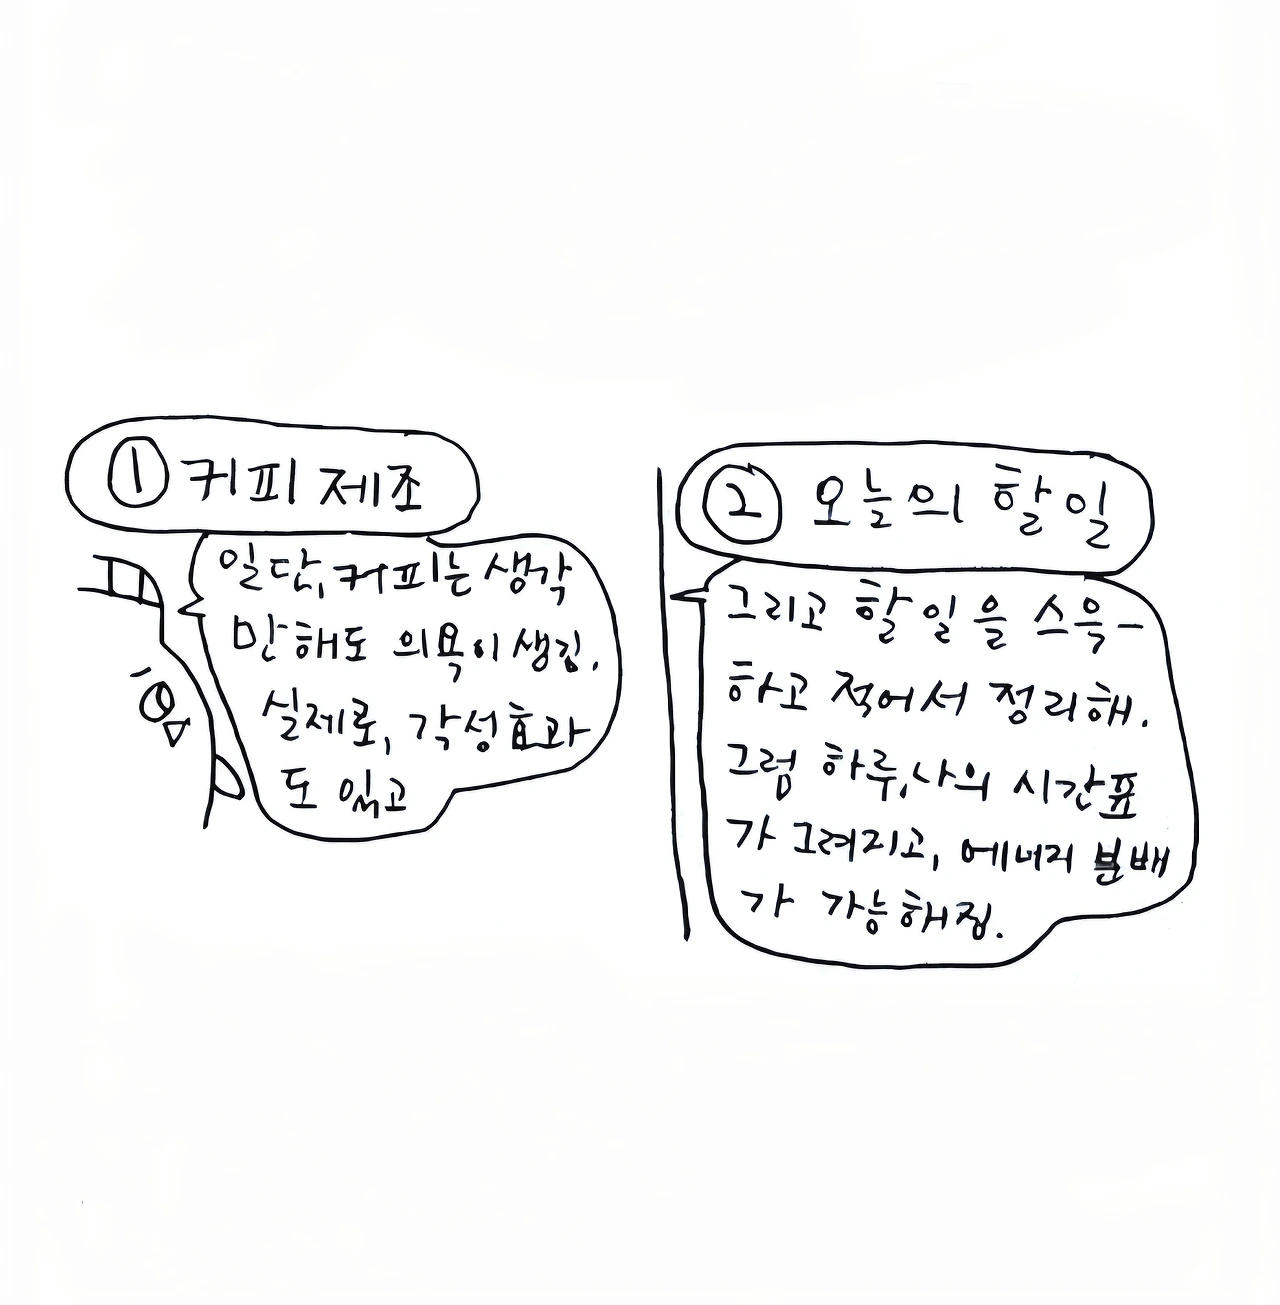 ① 커피 제조
일단, 커피는 생각
만해도 의욕이 생김.
실제로, 각성효과
도 있고
② 오늘의 할일
그리고 할일을 스윽-
하고 적어서 정리해.
그럼 하루, 나의 시간표
가 그려지고, 에너지 분배
가 가능해짐.